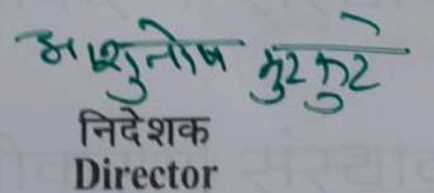 आशुतोष मुरकुटे
निदेशक
Director